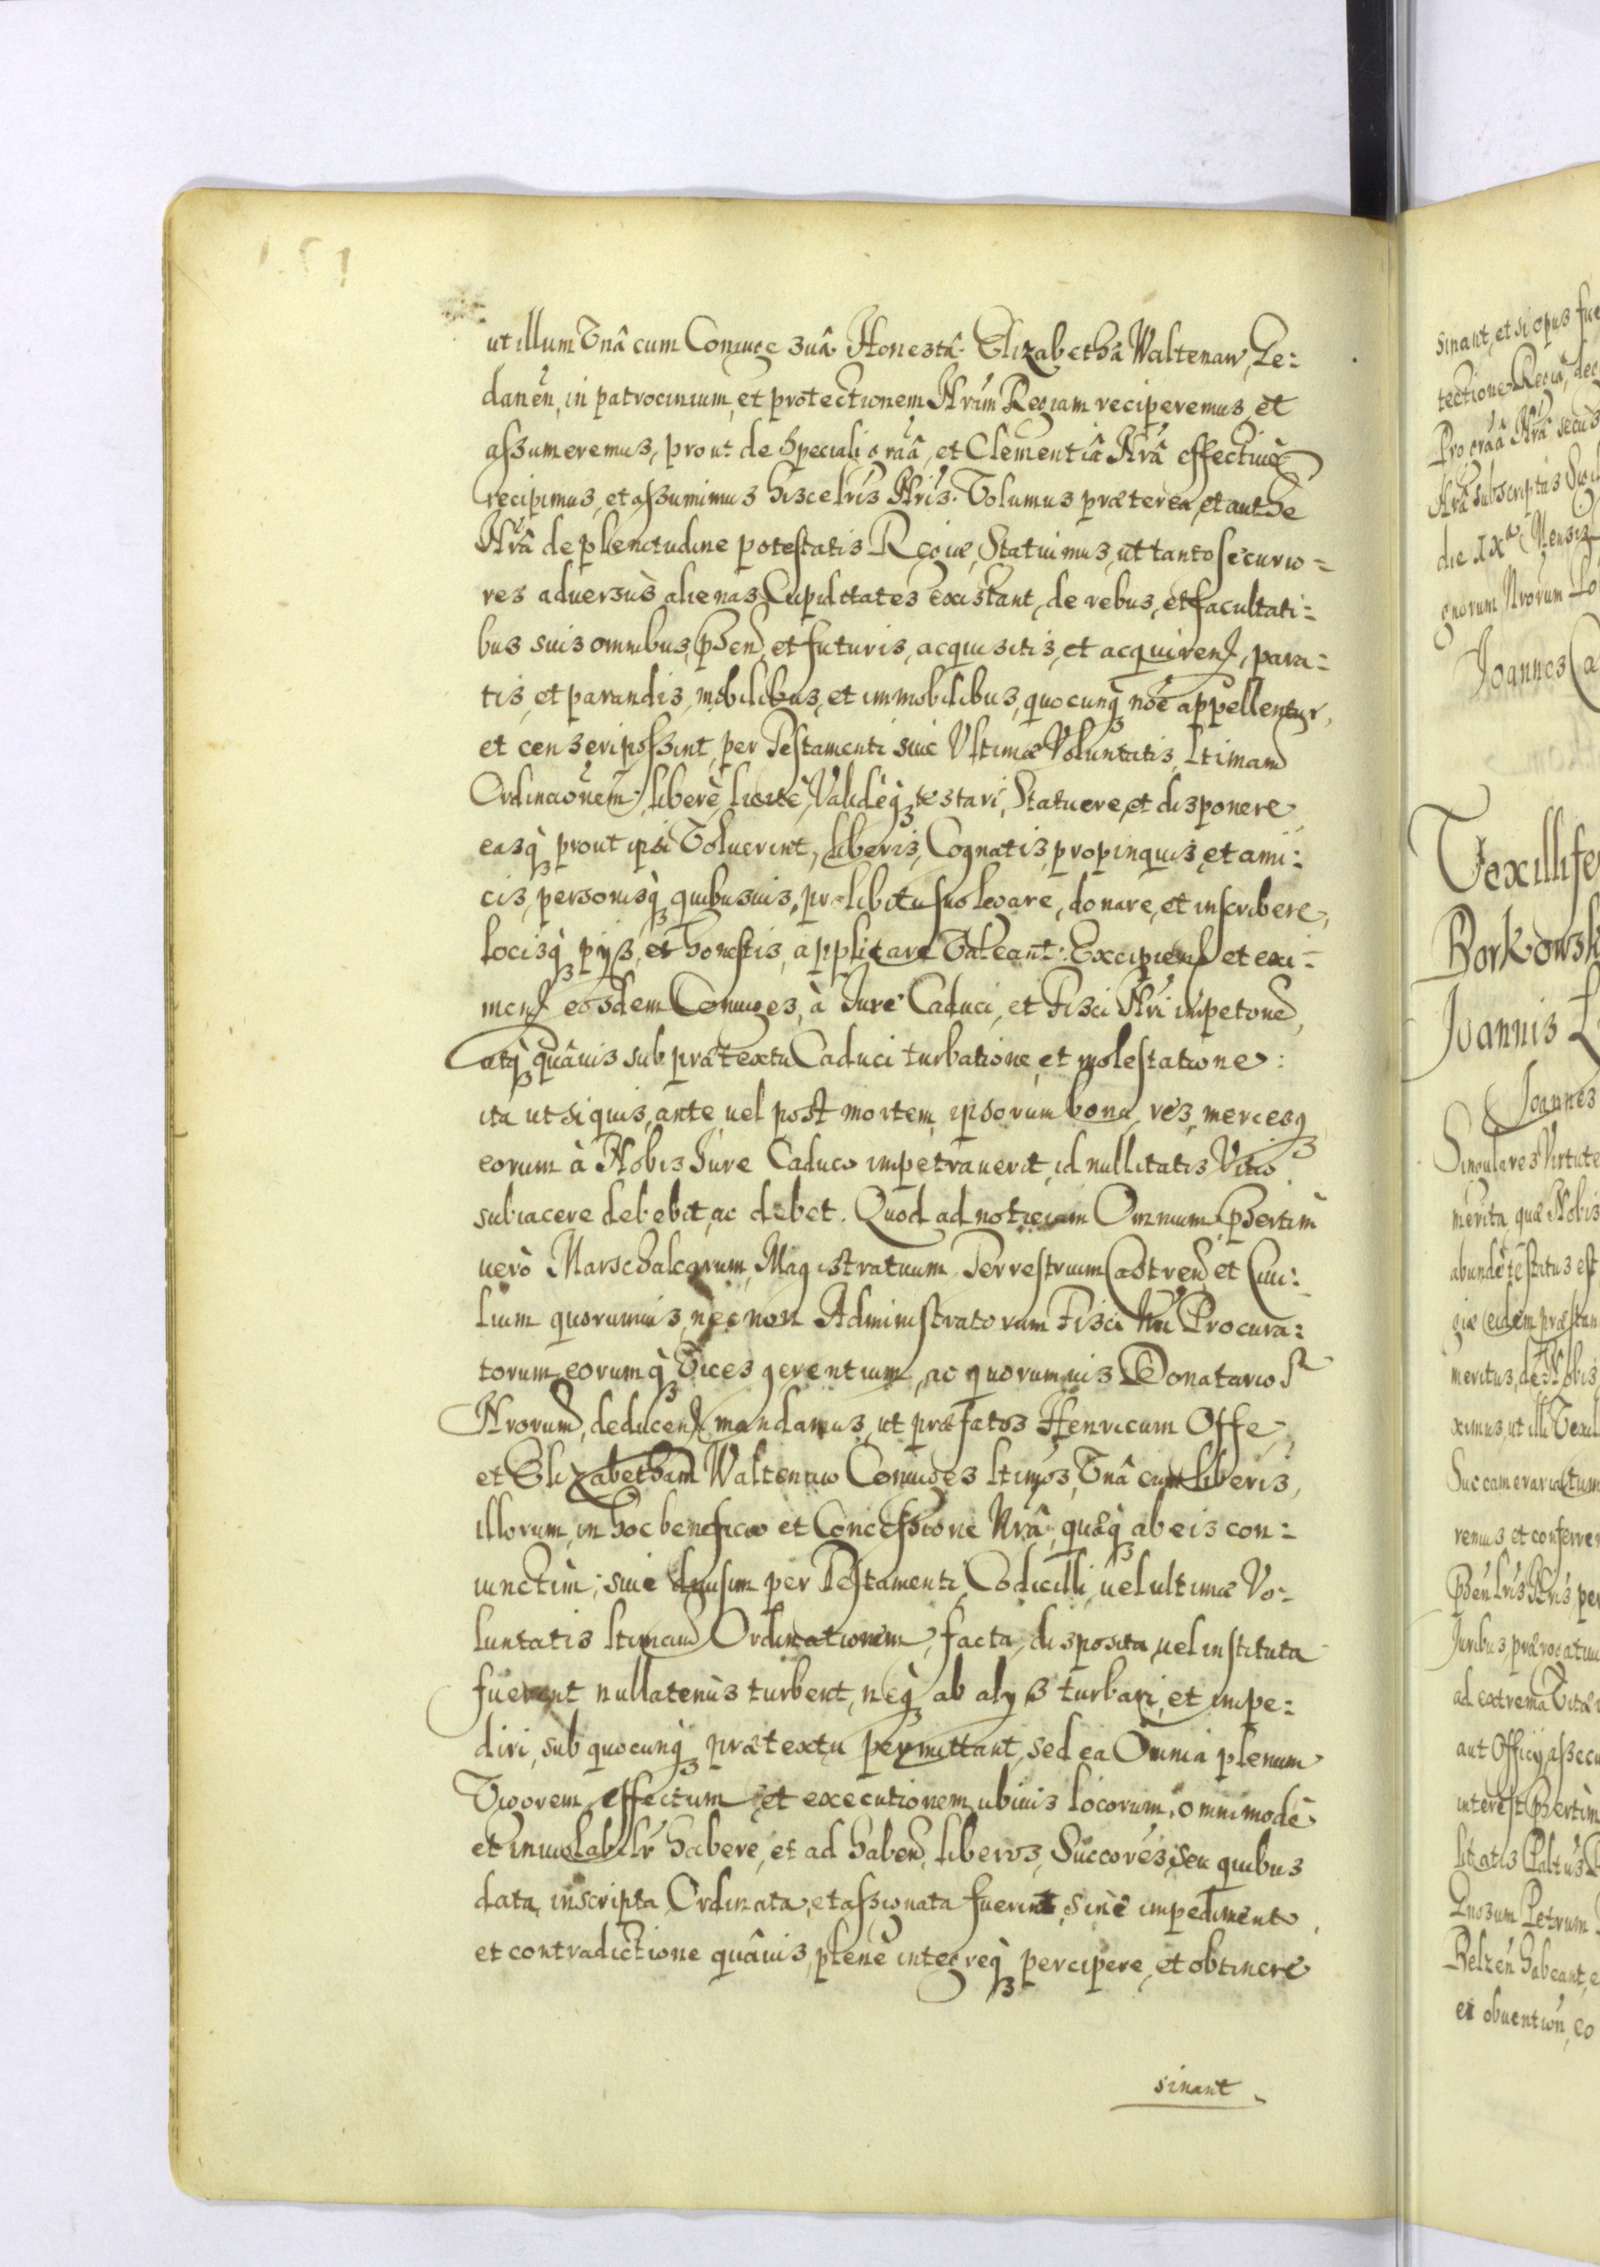 151
ut illum Vnâ cum Coniuge suâ Honestâ Elizabethâ Waltenaw, Ge:
danen, in patrocinium, et protectionem Nrãm Regiam reciperemus, et
assumeremus, prout de Speciali grãâ, et Clementiâ Nrâ effectiuè
recipimus, et assumimus hisce lris Nris. Volumus præterea, et authe
Nrâ de plenitudine potestatis Regiæ, Statuimus, ut tanto securio=
res aduersùs alienas Cupiditates existant, de rebus, et facultati:
bus suis omnibus, phen, et futuris, acquisitis, et acquiren, para:
tis, et parandis, mobilibus, et immobilibus, quocunq nõe appellentur,
et censeri possint, per Testamenti siue Vltimæ Voluntatis, ltimam
Ordinaõnem, liberè, licitè, Validèq testari, Statuere, et disponere
easq prout ipsi Voluerint, liberis, Cognatis, propinquis, et ami:
cis, personisq quibusuis, pro libitu suo legare, donare, et inscribere,
locisq pijs, et honestis, applicare Valeant. Excipien et exi:
men eosdem Coniuges, à Jure Caduci, et Fisci Nri impetone,
atq quâuis sub prætextu Caduci turbatione, et molestatione:
ita ut si quis, ante, uel post mortem, ipsorum bona, res, mercesq
eorum à Nobis Jure Caduco impetrauerit, id nullitatis Vitio
subiacere debebit, ac debet. Quod ad notitiam Omnium, phertim
uerò Marschalcorum, Magistratuum Terrestrium Castren et Ciui:
lium quorumuis, necnon Administratorum Fisci Nri Procura:
torum, eorumq Vices gerentium, ac quorumuis Donatarior
Nrorum, deducen mandamus, ut præfatos Henricum Offe,
et Elizabetham Waltenaw Coniuges ltimos, Vnâ cum liberis,
illorum, in hoc beneficio et Concessione Nrâ, quæq ab eis con:
iunctim, siue diuisim per Testamenti, Codicilli, uel ultimæ Vo:
luntatis ltimam Ordinationem, facta, disposita, uel instituta
fuerint nullatenùs turbent, neq ab alys turbari, et impe:
diri, sub quocunq prætextu permittant, sed ea Omnia plenum
Vigorem, effectum, et executionem, ubiuis locorum, omnimodè
et inuiolabilr habere, et ad haben liberos, Succores, seu quibus
data, inscripta, Ordinata, et assignata fuerint, sinè impedimento
et contradictione quâuis, plenè integreq percipere, et obtinere
sinant
sinant, et si opus fue
Pro
Nrâ subscriptus
die
gnorum Nrorum
Joannes Ca
Vexillife
Borkowsk
Joannis
Joannes
Singulares Virtute
merita, quæ Nobis
abundè testatus est
giæ eidem præstan
meritus, de Nobis
ximus, ut illi Vexil
Succamerariatum
remus et conferre
Phen lris Nris per
Juribus, prærogatiu
ad extrema Vitæ
aut Officij, assecu
interest phertim
litatis Palatus
Gnosum Petrum
Belzen habeant, e
et obuention, eo